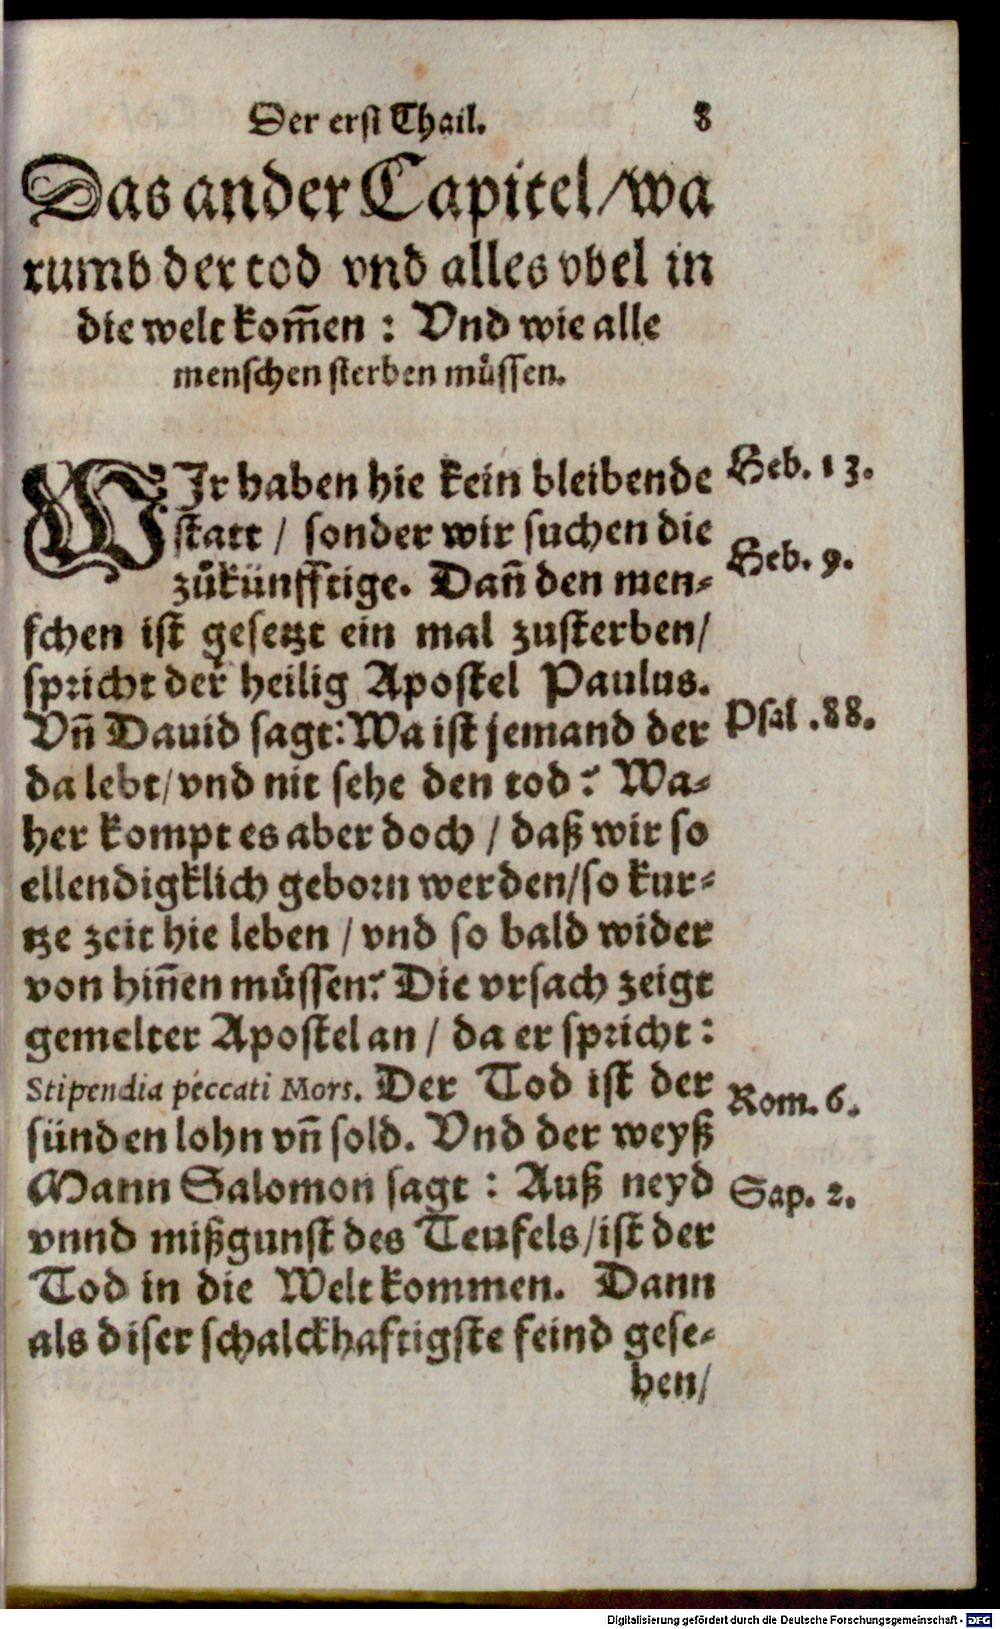 Der erst Thail. 8
Das ander Capitel / wa
rumb der tod vnd alles vbel in
die welt kom̄en : Vnd wie alle
menschen sterben müssen.
WIr haben hie kein bleibende
statt / sonder wir suchen die
zůkünfftige. Dañ den men⸗
schen ist gesetzt ein mal zusterben /
spricht der heilig Apostel Paulus.
Vñ Dauid sagt: Wa ist jemand der
da lebt / vnd nit sehe den tod? Wa⸗
her kompt es aber doch / daß wir so
ellendigklich geborn werden / so kur⸗
tze zeit hie leben / vnd so bald wider
von hiñen müssen? Die vrsach zeigt
gemelter Apostel an / da er spricht :
Stipendia peccati Mors. Der Tod ist der
sünden lohn vñ sold. Vnd der weyß
Mann Salomon sagt : Auß neyd
vnnd mißgunst des Teufels / ist der
Tod in die Welt kommen. Dann
als diser schalckhafftigste feind gese⸗
hen /
Heb. 13.
Heb. 9.
Psal .88.
Rom. 6.
Sap. 2.
Digitalisierung gefördert durch die Deutsche Forschungsgemeinschaft - DFG